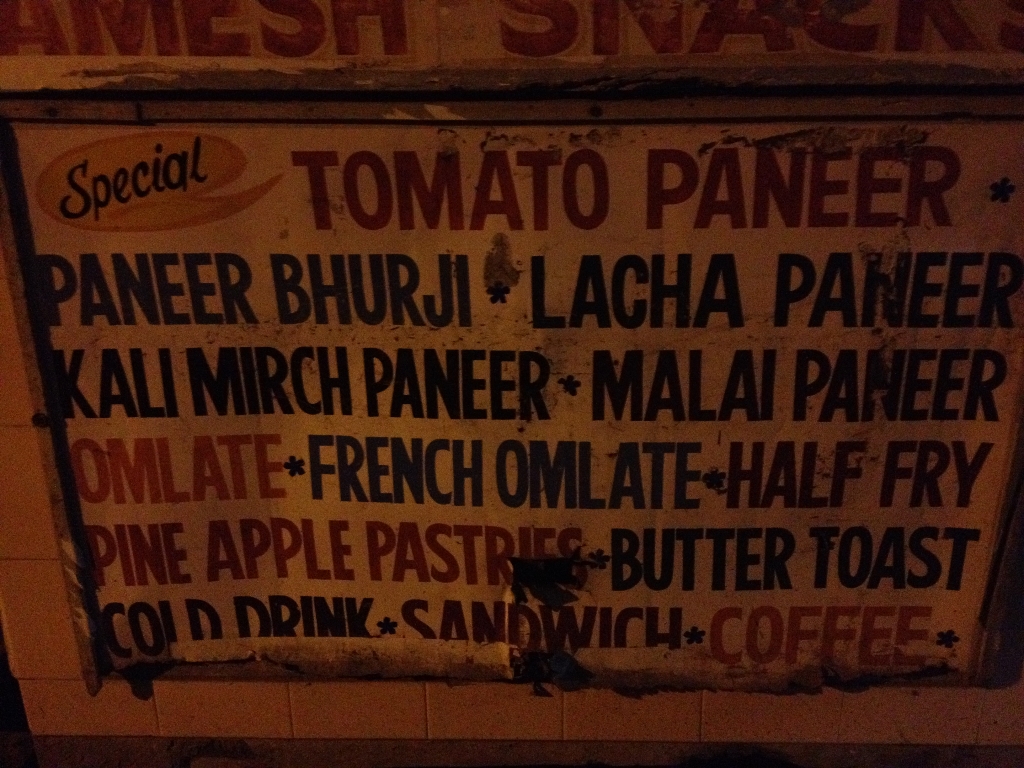 AMESH SNACKS
Special TOMATO PANEER *
PANEER BHURJI * LACHA PANEER
KALI MIRCH PANEER * MALAI PANEER
OMLATE * FRENCH OMLATE * HALF FRY
PINE APPLE PASTRIES * BUTTER TOAST
COLD DRINK * SANDWICH * COFFEE *